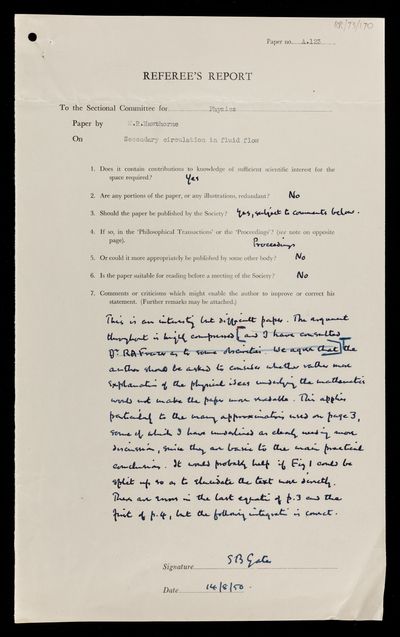 RR/73/170
Paper no. A.123
REFEREE'S REPORT
To the Sectional Committee for Physics
Paper by W.R.Hawthorne
On Secondary circulation in fluid flow
1. Does it contain contributions to knowledge of sufficient scientific interest for the
space required? Yes
2. Are any portions of the paper, or any illustrations, redundant? No
3. Should the paper be published by the Society? Yes, subject to comments below.
4. If so, in the 'Philosophical Transactions' or the 'Proceedings'? (see note on opposite
page). Proceedings
5. Or could it more appropriately be published by some other body? No
6. Is the paper suitable for reading before a meeting of the Society? No
7. Comments or criticisms which might enable the author to improve or correct his
statement. (Further remarks may be attached.)
This is an interesting but difficult paper. The argument
throughout is highly compressed [and I have consulted
Dr R.A.Frazer as to some obscurities. We agree that] the
author should be asked to consider whether rather more
explanation of the physical ideas underlying the mathematics
would not make the paper more readable. This applies
particularly to the many approximations used on page 3,
some of which I have underlined as clearly needing more
discussion, since they are basic to the main practical
conclusions. It would probably help if Fig 1 could be
split up so as to elucidate the text more directly.
There are errors in the last equation of p.3 and the
first of p.4, but the following integration is correct.
Signature S B Gates
Date 14/8/50